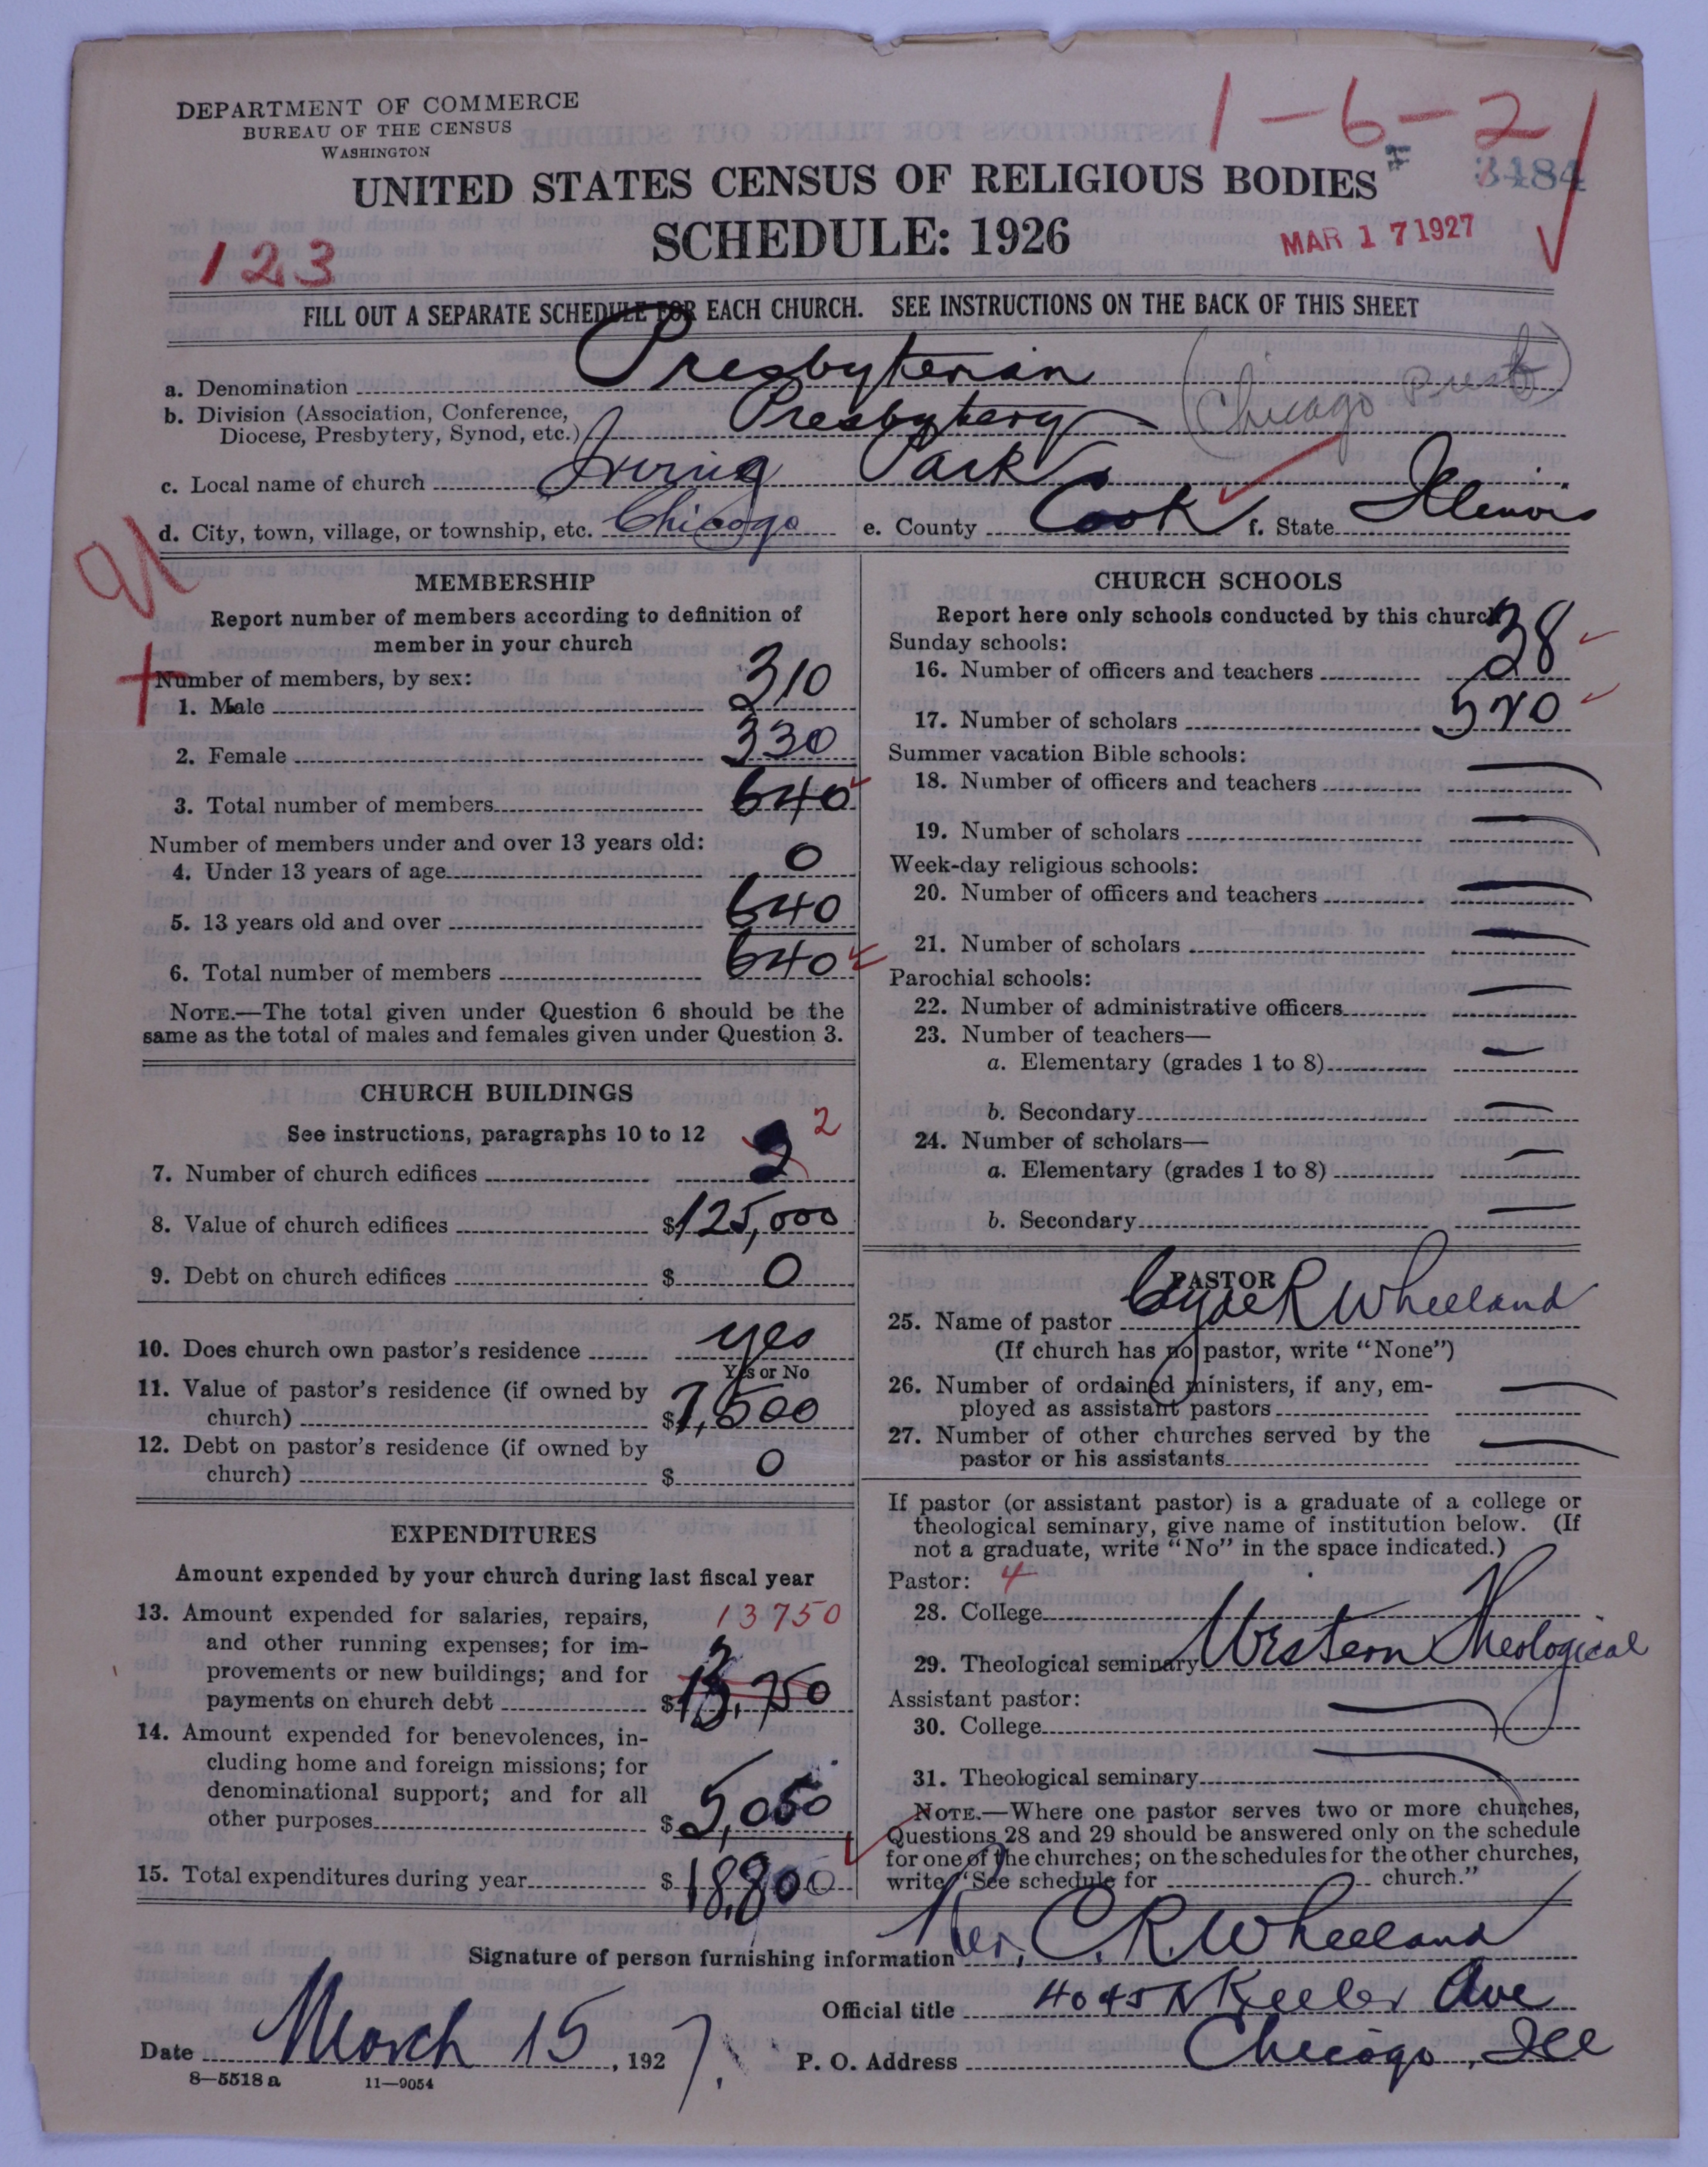 DEPARTMENT OF COMMERCE
BUREAU OF THE CENSUS
WASHINGTON
1-6-2
3484
UNITED STATES CENSUS OF RELIGIOUS BODIES
SCHEDULE: 1926
MAR 17 1927
123
FILL OUT A SEPARATE SCHEDULE FOR EACH CHURCH. SEE INSTRUCTIONS ON THE BACK OF THIS SHEET
a. Denomination Presbyterian
b. Division (Association, Conference, Diocese, Presbytery, Synod, etc.) Presbytery (Chicago Presb)
c. Local name of church Irving Park
d. City, town, village, or township, etc. Chicago e. County Cook f. State Illinois
91
MEMBERSHIP
Report number of members according to definition of
member in your church
Number of members, by sex:
1. Male 310
2. Female 330
3. Total number of members 640
Number of members under and over 13 years old:
4. Under 13 years of age 0
5. 13 years old and over 640
6. Total number of members 640
NOTE.—The total given under Question 6 should be the
same as the total of males and females given under Question 3.
CHURCH BUILDINGS
See instructions, paragraphs 10 to 12
2
7. Number of church edifices 2
8. Value of church edifices $125,000
9. Debt on church edifices $ 0
10. Does church own pastor's residence yes
Yes or No
11. Value of pastor's residence (if owned by
church) $7,500
12. Debt on pastor's residence (if owned by
church) $ 0
EXPENDITURES
Amount expended by your church during last fiscal year
13. Amount expended for salaries, repairs, 13750
and other running expenses; for im-
provements or new buildings; and for
payments on church debt $13,750
14. Amount expended for benevolences, in-
cluding home and foreign missions; for
denominational support; and for all
other purposes $5,050
15. Total expenditures during year $18,800
CHURCH SCHOOLS
Report here only schools conducted by this church
Sunday schools:
16. Number of officers and teachers 38
17. Number of scholars 520
Summer vacation Bible schools:
18. Number of officers and teachers —
19. Number of scholars —
Week-day religious schools:
20. Number of officers and teachers —
21. Number of scholars —
Parochial schools:
22. Number of administrative officers —
23. Number of teachers—
a. Elementary (grades 1 to 8) —
b. Secondary —
24. Number of scholars—
a. Elementary (grades 1 to 8) —
b. Secondary —
PASTOR
25. Name of pastor Clyde R Wheeland
(If church has no pastor, write "None")
26. Number of ordained ministers, if any, em-
ployed as assistant pastors —
27. Number of other churches served by the
pastor or his assistants —
If pastor (or assistant pastor) is a graduate of a college or
theological seminary, give name of institution below. (If
not a graduate, write "No" in the space indicated.)
Pastor: 4
28. College
29. Theological seminary Western Theological
Assistant pastor:
30. College —
31. Theological seminary —
NOTE.—Where one pastor serves two or more churches,
Questions 28 and 29 should be answered only on the schedule
for one of the churches; on the schedules for the other churches,
write "See schedule for church."
Signature of person furnishing information Rev. C. R. Wheeland
Official title 4045 N Keeler Ave
Date March 15, 1927. P. O. Address Chicago, Ill
8—5518 a 11—9054